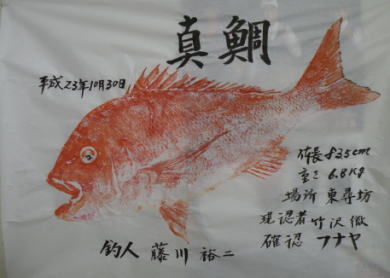 真鯛
平成23年10月30日
体長 82.5cm
重さ 6.8Kg
場所 東尋坊
現認者 竹沢 徹
確認 フナヤ
釣人 藤川 裕二